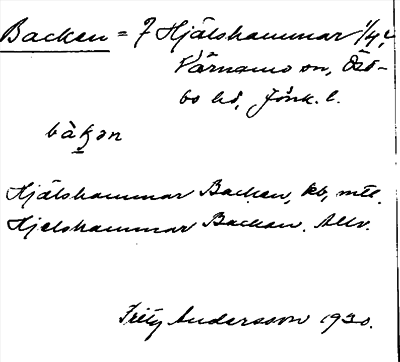 Backen = 7 Hjälshammar 1/4,
Värnamo sn, Öst-
bo hd, Jönk. l.
bàḵən
Hjälshammar Backen, kb, mtl.
Hjelshammar Backen. Allv.
Fritz Andersson 1930.